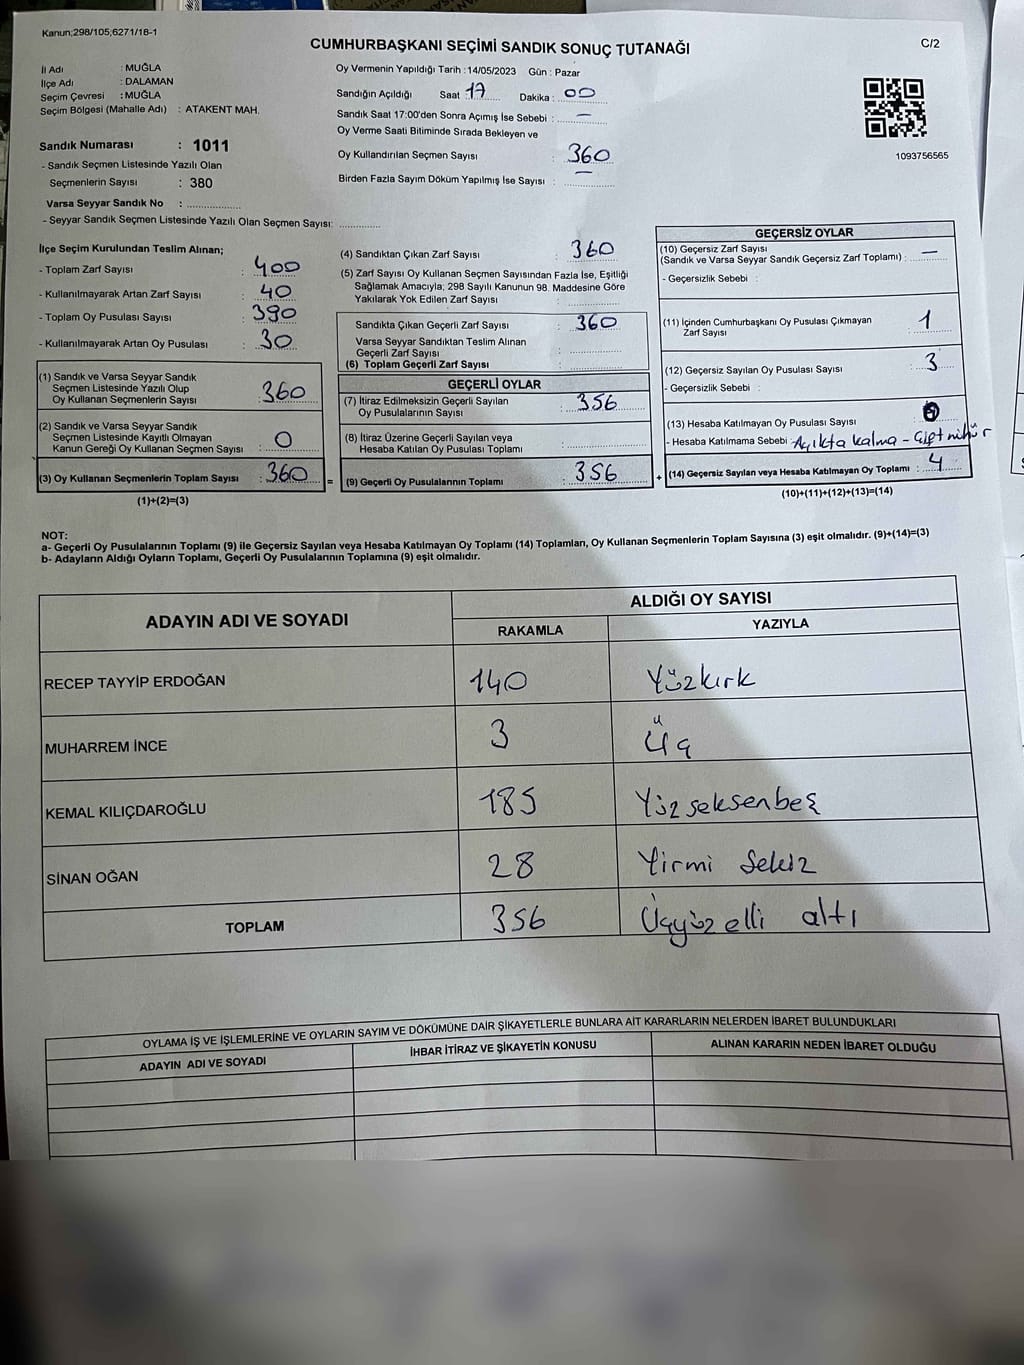 Kanun;298/105,6271/18-1
CUMHURBAŞKANI SEÇİMİ SANDIK SONUÇ TUTANAĞI
C/2
İl Adı : MUĞLA
İlçe Adı : DALAMAN
Seçim Çevresi : MUĞLA
Seçim Bölgesi (Mahalle Adı) : ATAKENT MAH.
Sandık Numarası : 1011
- Sandık Seçmen Listesinde Yazılı Olan
Seçmenlerin Sayısı : 380
Varsa Seyyar Sandık No :
- Seyyar Sandık Seçmen Listesinde Yazılı Olan Seçmen Sayısı:
Oy Vermenin Yapıldığı Tarih : 14/05/2023 Gün : Pazar
Sandığın Açıldığı Saat : 17 Dakika : 00
Sandık Saat 17:00'den Sonra Açımış İse Sebebi : —
Oy Verme Saati Bitiminde Sırada Bekleyen ve
Oy Kullandırılan Seçmen Sayısı : 360
Birden Fazla Sayım Döküm Yapılmış İse Sayısı : —
1093756565
İlçe Seçim Kurulundan Teslim Alınan;
- Toplam Zarf Sayısı : 400
- Kullanılmayarak Artan Zarf Sayısı : 40
- Toplam Oy Pusulası Sayısı : 390
- Kullanılmayarak Artan Oy Pusulası : 30
(1) Sandık ve Varsa Seyyar Sandık
Seçmen Listesinde Yazılı Olup
Oy Kullanan Seçmenlerin Sayısı : 360
(2) Sandık ve Varsa Seyyar Sandık
Seçmen Listesinde Kayıtlı Olmayan
Kanun Gereği Oy Kullanan Seçmen Sayısı : 0
(3) Oy Kullanan Seçmenlerin Toplam Sayısı : 360
(1)+(2)=(3)
(4) Sandıktan Çıkan Zarf Sayısı : 360
(5) Zarf Sayısı Oy Kullanan Seçmen Sayısından Fazla İse, Eşitliği
Sağlamak Amacıyla; 298 Sayılı Kanunun 98. Maddesine Göre
Yakılarak Yok Edilen Zarf Sayısı :
Sandıkta Çıkan Geçerli Zarf Sayısı : 360
Varsa Seyyar Sandıktan Teslim Alınan
Geçerli Zarf Sayısı :
(6) Toplam Geçerli Zarf Sayısı :
GEÇERLİ OYLAR
(7) İtiraz Edilmeksizin Geçerli Sayılan
Oy Pusulalarının Sayısı : 356
(8) İtiraz Üzerine Geçerli Sayılan veya
Hesaba Katılan Oy Pusulası Toplamı :
= (9) Geçerli Oy Pusulalarının Toplamı : 356
GEÇERSİZ OYLAR
(10) Geçersiz Zarf Sayısı
(Sandık ve Varsa Seyyar Sandık Geçersiz Zarf Toplamı) : —
- Geçersizlik Sebebi :
(11) İçinden Cumhurbaşkanı Oy Pusulası Çıkmayan
Zarf Sayısı : 1
(12) Geçersiz Sayılan Oy Pusulası Sayısı : 3
- Geçersizlik Sebebi :
(13) Hesaba Katılmayan Oy Pusulası Sayısı :
- Hesaba Katılmama Sebebi : Açıkta kalma - Çift mühür
+ (14) Geçersiz Sayılan veya Hesaba Katılmayan Oy Toplamı : 4
(10)+(11)+(12)+(13)=(14)
NOT:
a- Geçerli Oy Pusulalarının Toplamı (9) ile Geçersiz Sayılan veya Hesaba Katılmayan Oy Toplamı (14) Toplamları, Oy Kullanan Seçmenlerin Toplam Sayısına (3) eşit olmalıdır. (9)+(14)=(3)
b- Adayların Aldığı Oyların Toplamı, Geçerli Oy Pusulalarının Toplamına (9) eşit olmalıdır.
ADAYIN ADI VE SOYADI
ALDIĞI OY SAYISI
RAKAMLA YAZIYLA
RECEP TAYYİP ERDOĞAN 140 Yüzkırk
MUHARREM İNCE 3 Üç
KEMAL KILIÇDAROĞLU 185 Yüzseksenbeş
SİNAN OĞAN 28 Yirmi Sekiz
TOPLAM 356 Üçyüzelli altı
OYLAMA İŞ VE İŞLEMLERİNE VE OYLARIN SAYIM VE DÖKÜMÜNE DAİR ŞİKAYETLERLE BUNLARA AİT KARARLARIN NELERDEN İBARET BULUNDUKLARI
ADAYIN ADI VE SOYADI
İHBAR İTİRAZ VE ŞİKAYETİN KONUSU
ALINAN KARARIN NEDEN İBARET OLDUĞU